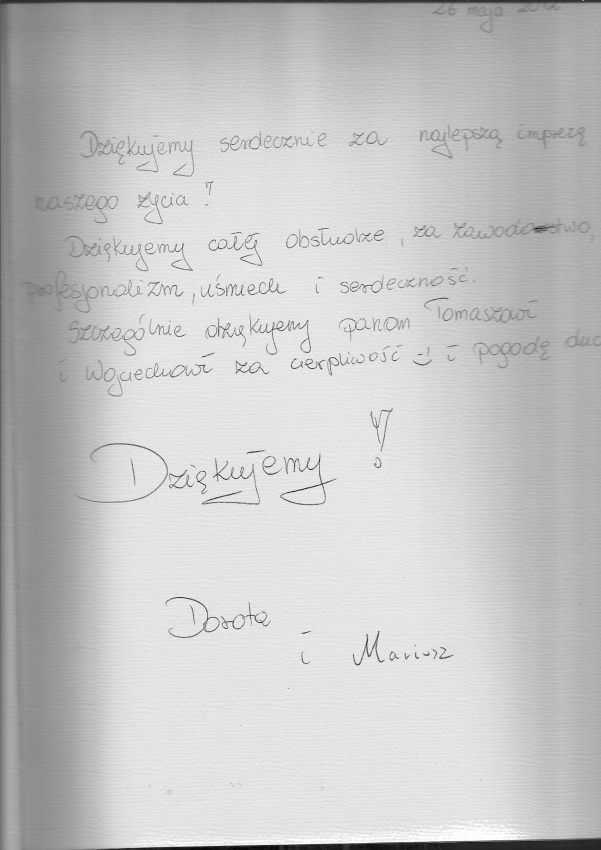 26 maja 2012
Dziękujemy serdecznie za najlepszą imprezę
naszego życia!
Dziękujemy całej obsłudze, za zawodowstwo,
profesjonalizm, uśmiech i serdeczność.
Szczególnie dziękujemy panom Tomaszowi
i Wojciechowi za cierpliwość :) i pogodę duc
Dziękujemy!
Dorota
i Mariusz